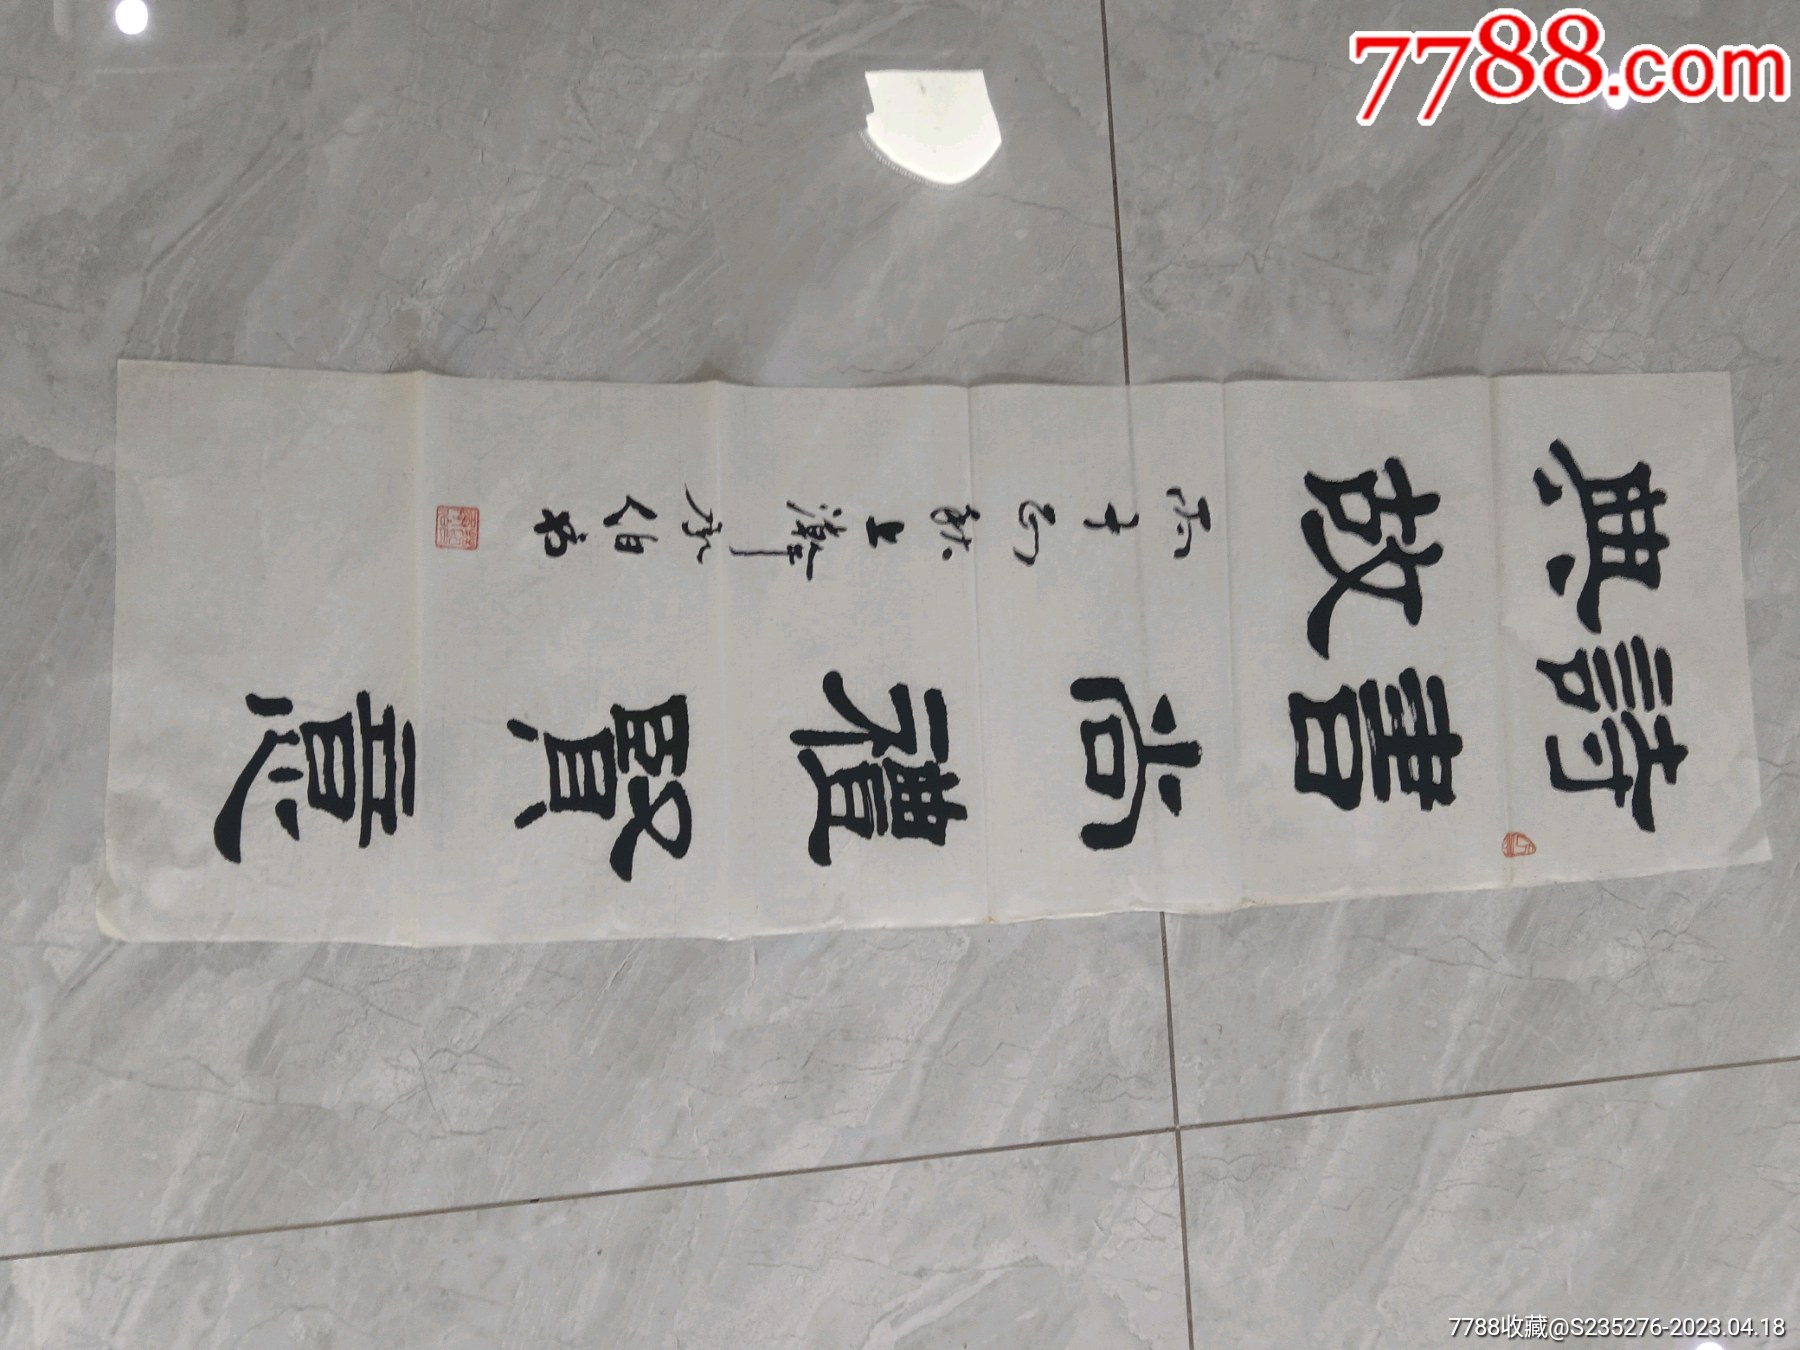 詩書尚禮賢意
典故
丙子初秋上澣承伯書
7788.com
7788收藏@S235276-2023.04.18